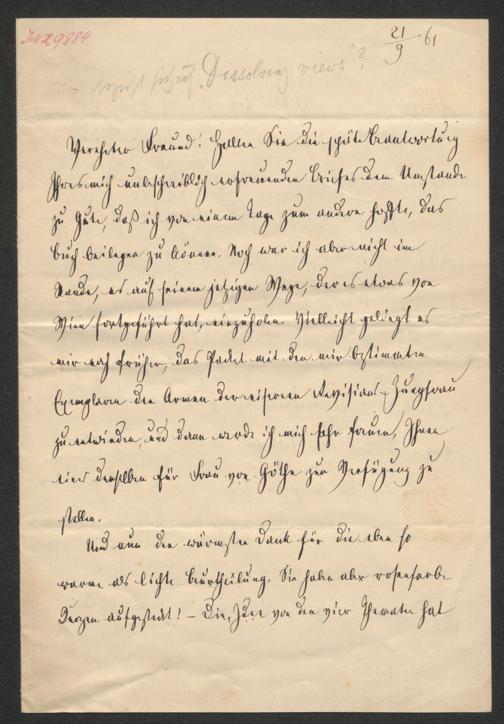 IN 29884
21/9 61
bezieht sich auf „Dissolving views"?
Verehrter Freund! Halten Sie die späte Beantwortung
Ihres mich unbeschreiblich erfreuenden Briefes dem Umstande
zu Gute, daß ich von einem Tage zum andern hoffte, das
Buch beilegen zu können. Noch war ich aber nicht im
Stande, es auf seinem jetzigen Wege, der es etwas von
Wien fortgeführt hat, einzuholen. Vielleicht gelingt es
mir noch früher, das Paket mit den mir bestimmten
Exemplaren den Armen der eisernen Revisions-Jungfrau
zu entwinden, und dann werde ich mich sehr freuen, Ihnen
eines derselben für Frau von Göthe zur Verfügung zu
stellen.
Und nun den wärmsten Dank für die eben so
warme als lichte Beurtheilung. Sie haben aber rosenfarbe
Kerzen aufgesteckt! – Die Idee von den vier Themaen hat